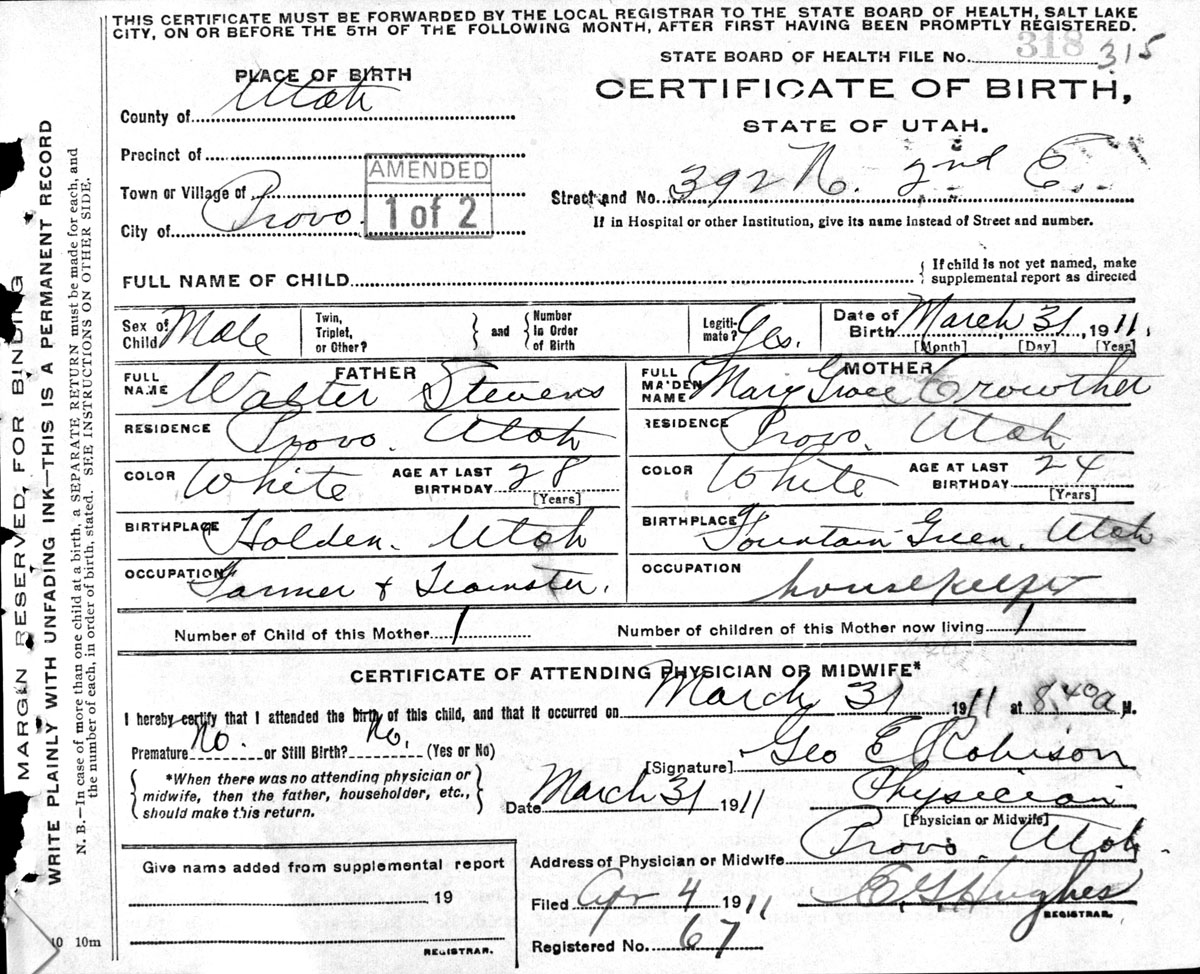 THIS CERTIFICATE MUST BE FORWARDED BY THE LOCAL REGISTRAR TO THE STATE BOARD OF HEALTH, SALT LAKE
CITY, ON OR BEFORE THE 5TH OF THE FOLLOWING MONTH, AFTER FIRST HAVING BEEN PROMPTLY REGISTERED.
STATE BOARD OF HEALTH FILE No. 318 315
PLACE OF BIRTH
CERTIFICATE OF BIRTH,
STATE OF UTAH.
County of Utah
Precinct of
Town or Village of
AMENDED
1 of 2
City of Provo.
Street and No. 392 N. 2nd E.
If in Hospital or other Institution, give its name instead of Street and number.
FULL NAME OF CHILD
If child is not yet named, make
supplemental report as directed
Sex of Child Male
Twin, Triplet, or Other?
and
Number In Order of Birth
Legitimate? Yes.
Date of Birth March 31, 1911.
[Month] [Day] [Year]
FATHER
FULL NAME Walter Stevens
MOTHER
FULL MAIDEN NAME Mary Grace Crowther
RESIDENCE Provo. Utah
RESIDENCE Provo. Utah
COLOR White AGE AT LAST BIRTHDAY 28 [Years]
COLOR White AGE AT LAST BIRTHDAY 24 [Years]
BIRTHPLACE Holden. Utah
BIRTHPLACE Fountain Green, Utah
OCCUPATION Farmer & Teamster.
OCCUPATION housekeeper
Number of Child of this Mother 1
Number of children of this Mother now living 1
CERTIFICATE OF ATTENDING PHYSICIAN OR MIDWIFE*
I hereby certify that I attended the birth of this child, and that it occurred on March 31 1911 at 8,40a M.
Premature No. or Still Birth? No. (Yes or No)
[Signature] Geo E Robison
*When there was no attending physician or
midwife, then the father, householder, etc.,
should make this return.
Date March 31 1911
Physician
[Physician or Midwife]
Address of Physician or Midwife Provo. Utah.
Give name added from supplemental report
19
REGISTRAR.
Filed Apr 4 1911
E. G. Hughes
REGISTRAR.
Registered No. 67
MARGIN RESERVED FOR BINDING
WRITE PLAINLY WITH UNFADING INK—THIS IS A PERMANENT RECORD
N. B.—In case of more than one child at a birth, a SEPARATE RETURN must be made for each, and
the number of each, in order of birth, stated. SEE INSTRUCTIONS ON OTHER SIDE.
10 10m